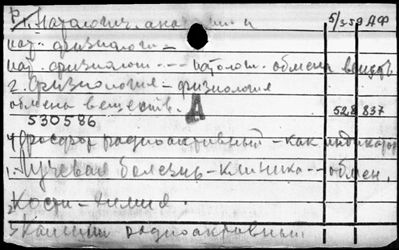 Р. Патологич. анатомия 5/3-59 АФ
пат. физиолог –
пат. физиолог. --- патолог. обмена веществ
2. Физиология – физиология
обмена веществ. А
530586 528837
4 Фосфор радиоактивный – как индикатор
1. Лучевая болезнь – клиника -- обмен.
2 Кости – химия.
3 Кальций радиоактивный